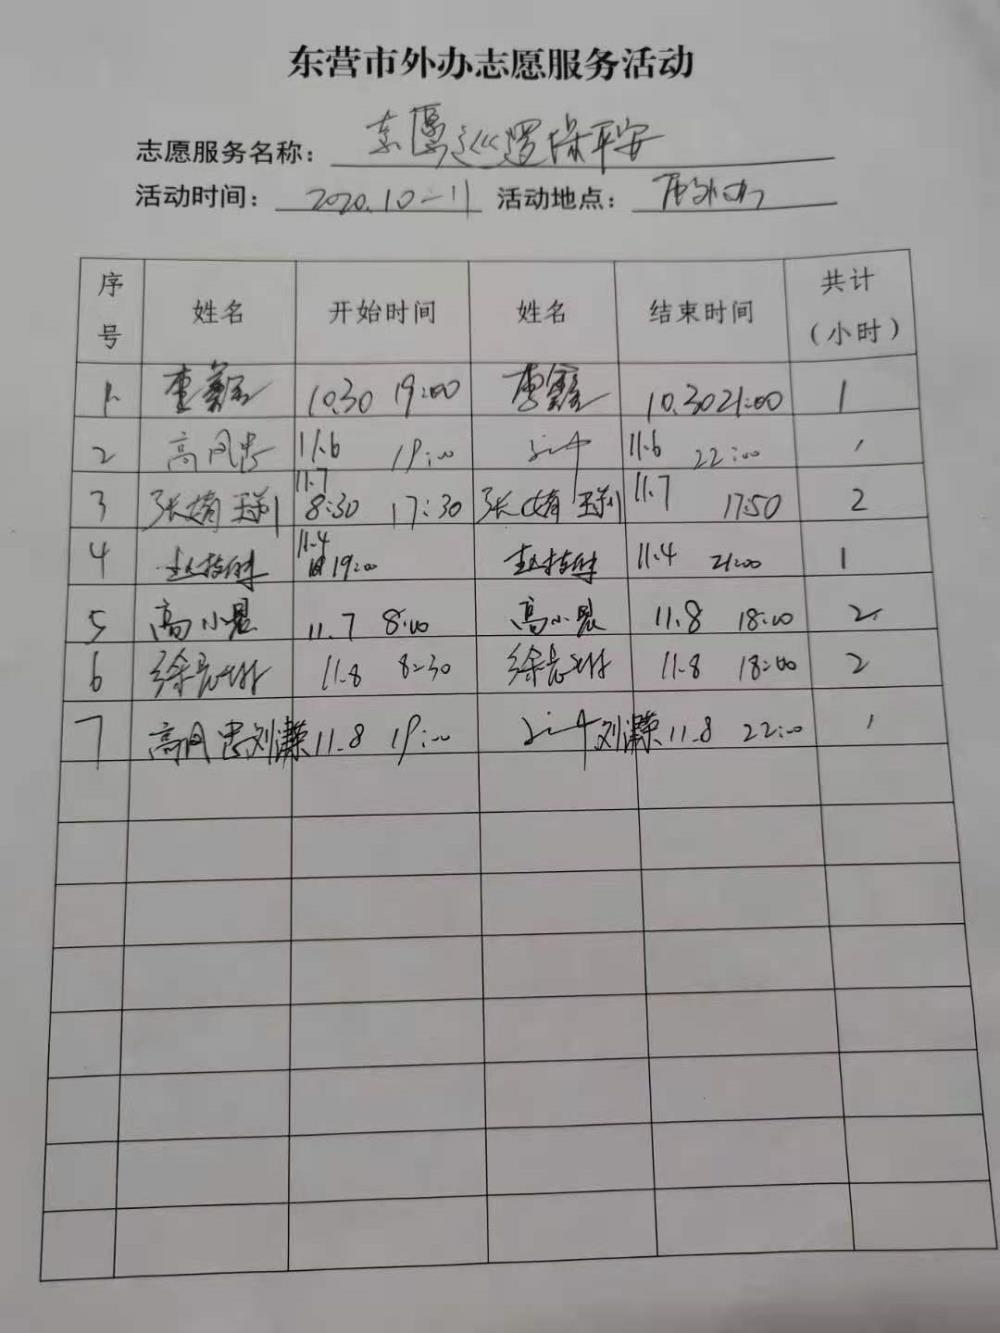 东营市外办志愿服务活动
志愿服务名称：志愿巡逻保平安
活动时间：2020.10-11 活动地点：
序号 姓名 开始时间 姓名 结束时间 共计（小时）
1. 李鑫 10.30 19:00 李鑫 10.30 21:00 1
2 高凤忠 11.6 19:00 11.6 22:00 1
3 张婧 11.7 8:30 17:30 张婧 11.7 17:50 2
4 11.4 19:00 11.4 21:00 1
5 高小晨 11.7 8:00 高小晨 11.8 18:00 2
6 徐 11.8 8:30 徐 11.8 18:00 2
7 高凤忠 刘潇荣 11.8 19:00 刘潇荣 11.8 22:00 1